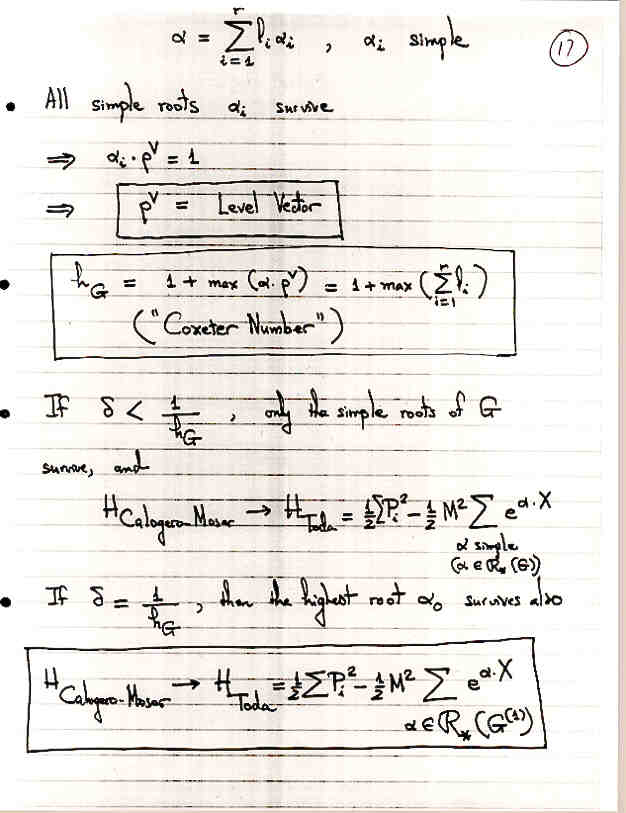 α = ∑_{i=1}^{r} l_i α_i , α_i simple
17
• All simple roots α_i survive
⇒ α_i · ρ^∨ = 1
⇒ ρ^∨ = Level Vector
• h_G = 1 + max (α·ρ^∨) = 1 + max (∑_{i=1}^{r} l_i)
("Coxeter Number")
• If δ < 1/h_G , only the simple roots of G
survive, and
H_{Calogero-Moser} → H_{Toda} = 1/2 ∑ P_i^2 - 1/2 M^2 ∑ e^{α·X}
α simple
(α ∈ R_*(G))
• If δ = 1/h_G , then the highest root α_0 survives also
H_{Calogero-Moser} → H_{Toda} = 1/2 ∑ P_i^2 - 1/2 M^2 ∑ e^{α·X}
α ∈ R_*(G^{(1)})